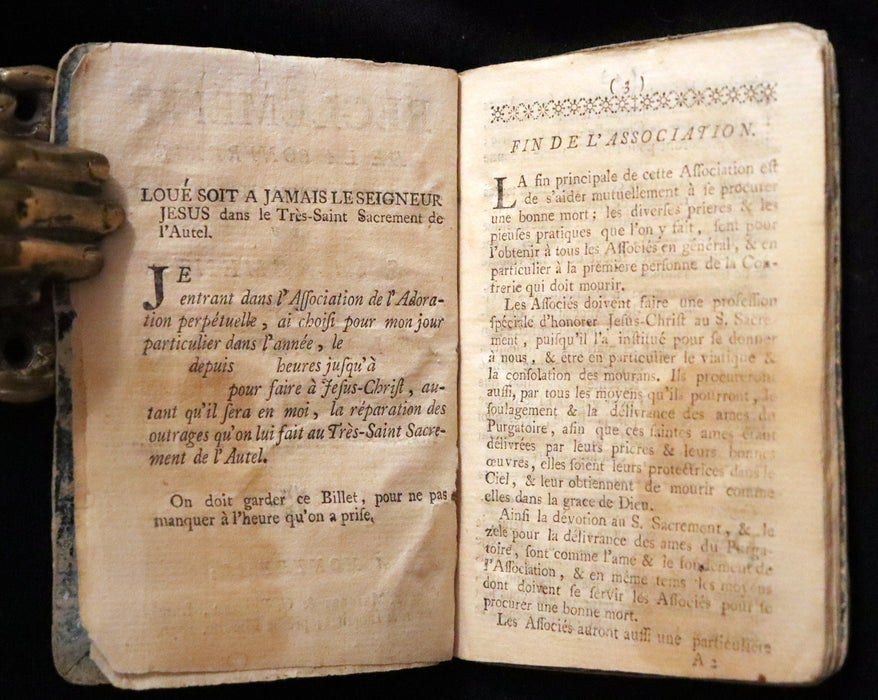 LOUÉ SOIT A JAMAIS LE SEIGNEUR
JESUS dans le Très-Saint Sacrement de
l'Autel.
JE
entrant dans l'Aſſociation de l'Adora-
tion perpétuelle, ai choiſi pour mon jour
particulier dans l'année, le
depuis heures juſqu'à
pour faire à Jeſus-Chriſt, au-
tant qu'il ſera en moi, la réparation des
outrages qu'on lui fait au Très-Saint Sacre-
ment de l'Autel.
On doit garder ce Billet, pour ne pas
manquer à l'heure qu'on a priſe.
(3)
FIN DE L'ASSOCIATION.
LA fin principale de cette Aſſociation eſt
de s'aider mutuellement à ſe procurer
une bonne mort; les diverſes prieres & les
pieuſes pratiques que l'on y fait, ſont pour
l'obtenir à tous les Aſſociés en général, & en
particulier à la premiere perſonne de la Con-
frerie qui doit mourir.
Les Aſſociés doivent faire une profeſſion
ſpéciale d'honorer Jeſus-Chriſt au S. Sacre-
ment, puiſqu'il l'a inſtitué pour ſe donner
à nous, & être en particulier le viatique &
la conſolation des mourans. Ils procureront
auſſi, par tous les moyens qu'ils pourront, le
ſoulagement & la délivrance des ames du
Purgatoire, afin que ces ſaintes ames étant
délivrées par leurs prieres & leurs bonnes
œuvres, elles ſoient leurs protectrices dans le
Ciel, & leur obtiennent de mourir comme
elles dans la grace de Dieu.
Ainſi la dévotion au S. Sacrement, & le
zele pour la délivrance des ames du Purga-
toire, ſont comme l'ame & le fondement de
l'Aſſociation, & en même tems les moyens
dont doivent ſe ſervir les Aſſociés pour ſe
procurer une bonne mort.
Les Aſſociés auront auſſi une particuliere
A 2